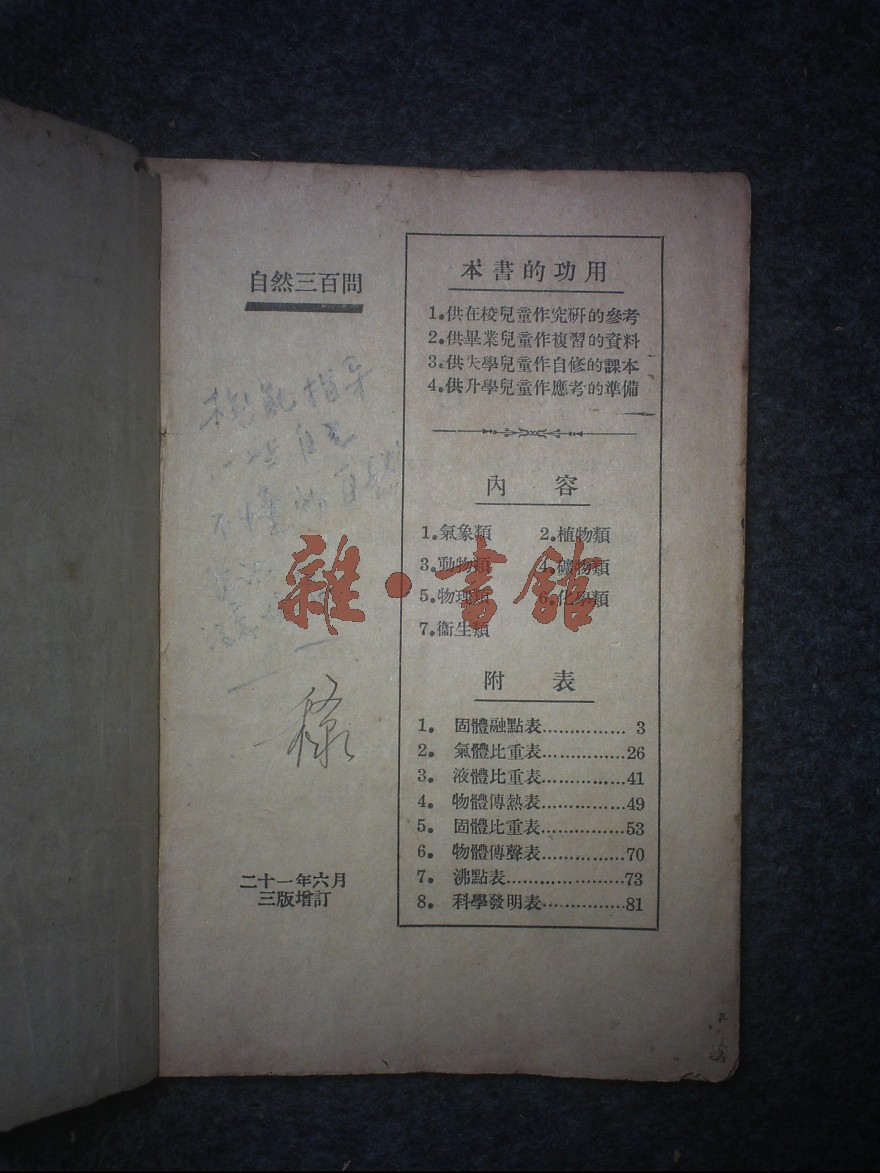 自然三百問
本書的功用
1.供在校兒童作究硏的參考
2.供畢業兒童作複習的資料
3.供失學兒童作自修的課本
4.供升學兒童作應考的準備
內 容
1.氣象類 2.植物類
3.動物類 4.礦物類
5.物理類 6.化學類
7.衞生類
附 表
1. 固體融點表............... 3
2. 氣體比重表...............26
3. 液體比重表...............41
4. 物體傳熱表...............49
5. 固體比重表...............53
6. 物體傳聲表...............70
7. 沸點表.....................73
8. 科學發明表...............81
二十一年六月
三版增訂
雜·書館